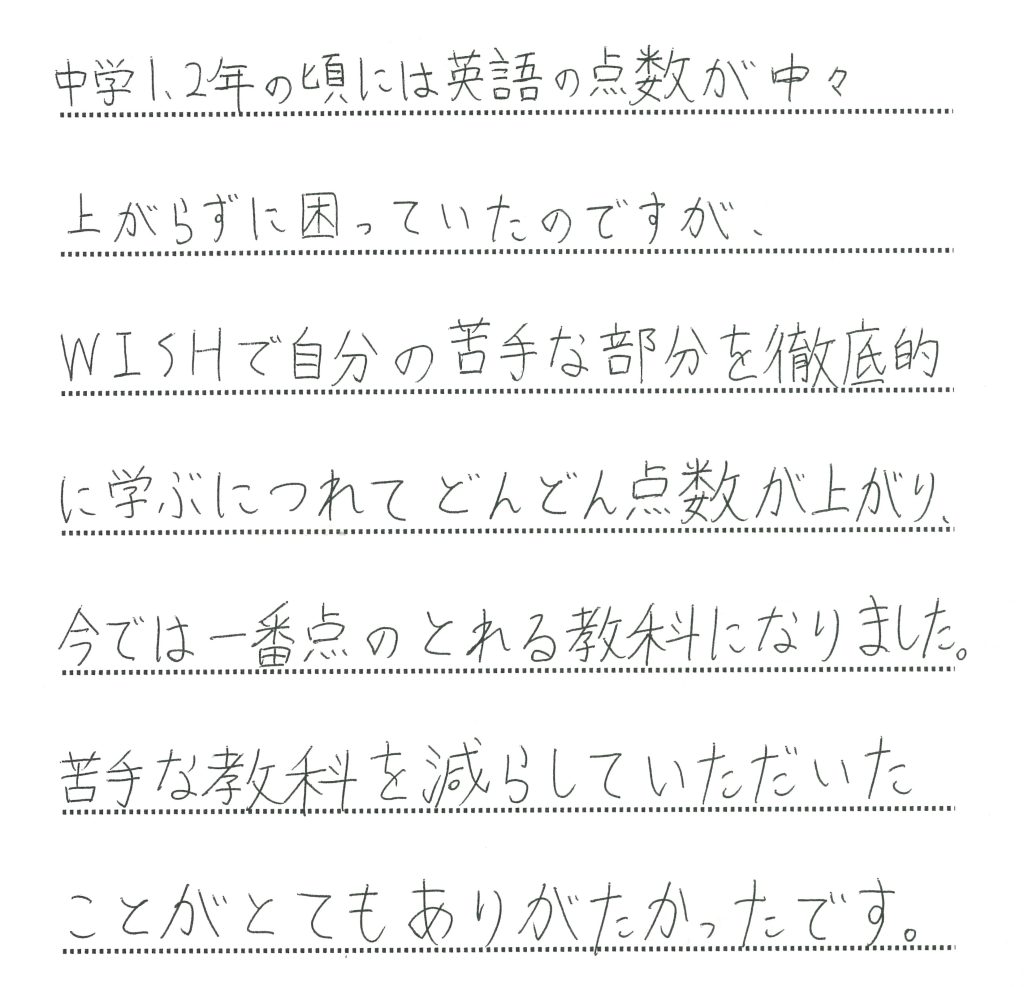 中学1、2年の頃には英語の点数が中々
上がらずに困っていたのですが、
WISHで自分の苦手な部分を徹底的
に学ぶにつれてどんどん点数が上がり、
今では一番点のとれる教科になりました。
苦手な教科を減らしていただいた
ことがとてもありがたかったです。